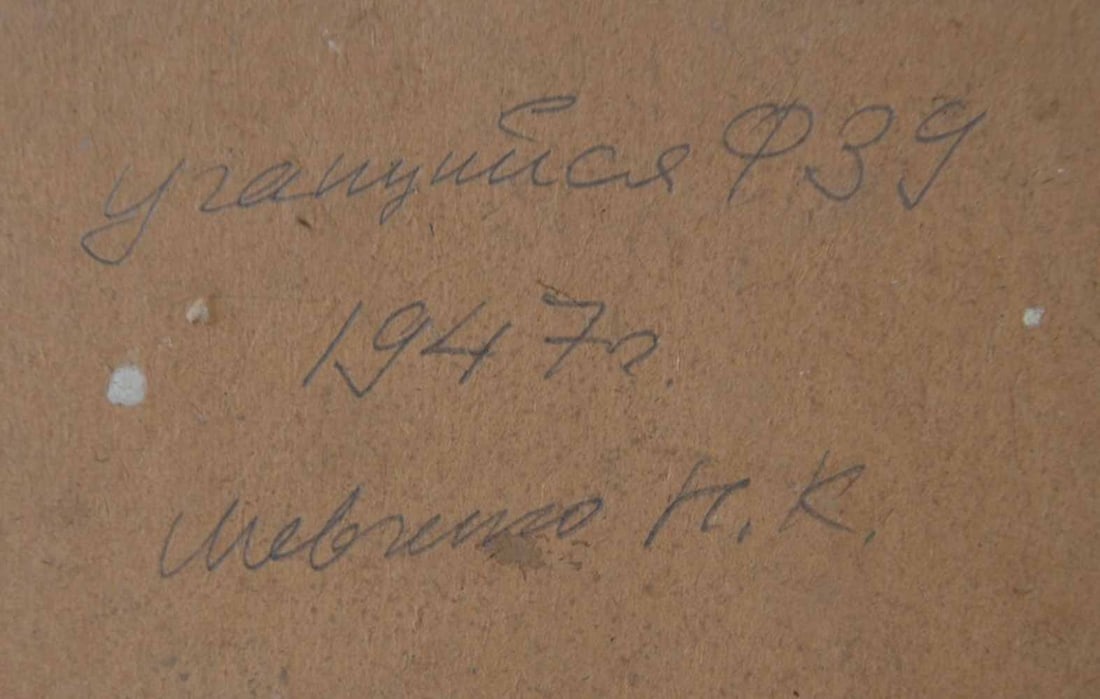 учащийся ФЗУ
1947г
Шевченко Н. К.